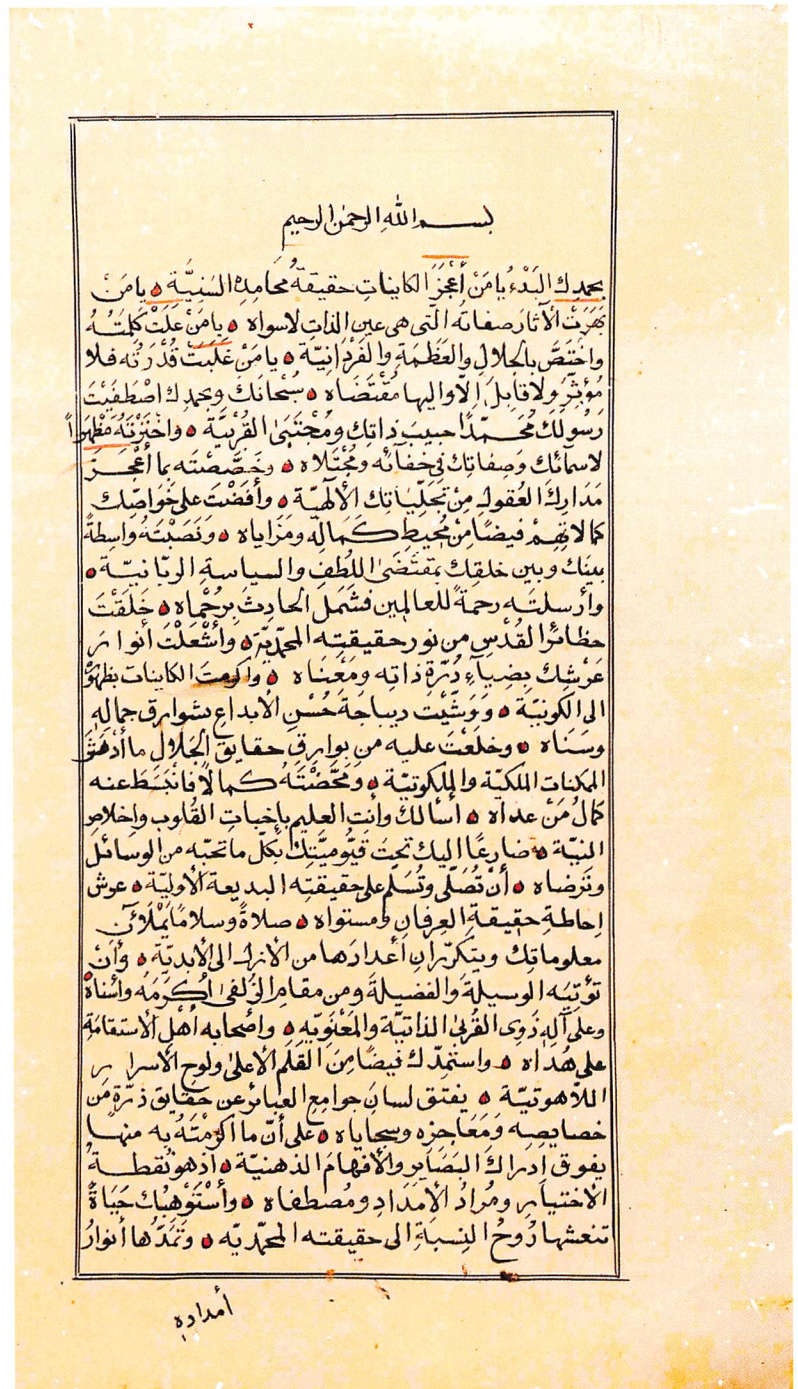 بسم الله الرحمن الرحيم
بحمدك البَدْءُ يا مَنْ أَعْجَزَ الكاينات حقيقةُ محامدِهِ السَنِيَّة ۞ يا مَن
بَهَرَتْ الآثارَ صفاته التى هى عين الذات لاسواه ۞ يا مَنْ عَلَتْ كلمَتُهُ
واختَصَّ بالجلال والعَظَمَةِ والفَرْدَانيّة ۞ يا مَن غَلَبَتْ قُدْرَتُه فلا
مُؤثّرَ ولا قابلَ إلّا واليها مُقْتَضَاه ۞ سُبْحانَكَ وبحمدِكَ اصْطَفَيْتَ
رَسُولكَ مُحَمَّدًا حبيبَ ذاتِك ومُجْتَبَى القُرْبيَّة ۞ واخْتَرْتَهُ مَظْهَراً
لاسمائك وَصِفاتِك فى خفائه ومُجْتَلاه ۞ وخَصَّصْتَه بما أَعْجَزَ
مَدَارِكَ العُقول مِنْ تجَلِّيَاتِك الالٰهيّة ۞ وأفَضْتَ على خَوَاصّك
كمالاتِهِمْ فيضًا مِنْ مُحيط كَمَالِه ومَزَاياه ۞ وَنَصَبْتَهُ واسِطةً
بينك وبين خلقِك بمقتَضَى اللُطفِ والسياسةِ الربّانيّة ۞
وأرسلتَه رحمةً للعالمين فشَمل الحادِثَ برُحْمَاه ۞ خَلَقْتَ
حظائرَ القُدْسِ من نور حقيقتِه المحمّديّة ۞ وأشْعَلْتَ أنوارَ
عَرْشك بِضِيآءِ دُرّةِ ذاتِه ومَعْناه ۞ واكرمتَ الكاينات بظهورِهِ
الى الكونيّة ۞ وَوَشّيْتَ ديباجةَ حُسْنِ الابداعِ بشوارقِ جمالِهِ
وسَنَاه ۞ وخلَعْتَ عليه من بوارقِ حقايق الجَلالِ ما أدْهَشَ
الممكنات الملكيّة والملكوتيّة ۞ ومَحَّضْتَهُ كمالاً فانْبَسَطَ عنه
كمالُ مَنْ عداه ۞ أسألك وأنت العليم بإخباتِ القُلوبِ وإخلاصِ
النيّة ۞ ضارعًا اليك تحتَ قَيُّوميّتِكَ بكلّ ما تحبّه من الوسائل
وتَرضاه ۞ أنْ تُصَلّى وتُسَلّم على حقيقتِه البديعة الأوليّة ۞ عرش
إحاطةِ حقيقةِ العِرفانِ ومستواه ۞ صلاةً وسلامًا يَمْلَآنِ
معلوماتِك ويتكرّرانِ أعْدادَها من الأزل الى الأبديّة ۞ وأنْ
تؤتيَه الوسيلةَ والفضيلةَ ومن مقام الزُلفى أكرَمَهُ وأسْناهُ
وعلى آلِهِ ذَوِى القُربَى الذاتيّة والمَعْنَويّه ۞ واصحابه أهْلِ الاستقامَةِ
على هُدَاه ۞ واستمِدّك فيضًا مِنَ القَلَم الاعلى ولوحِ الاسرارِ
اللاهوتيّة ۞ يفتق لسان جوامعِ العبائر عن حقايق ذرّةٍ مِن
خصايصِه ومَعَاجزِه وسجاياه ۞ على أنّ ما اكرَمْتَهُ به منها
يفوق إدراكَ البَصَايرِ والأفهامَ الذهنيّة ۞ اذ هو نُقطةُ
الاختيارِ ومُرادُ الأمدَادِ ومُصطفاه ۞ وأسْتَوْهِبُك حَيَاةً
تنعشها رُوحُ النِسبَةِ الى حقيقته المحمّديّه ۞ وتَمَدُّها أنوارُ
أمدادِهِ